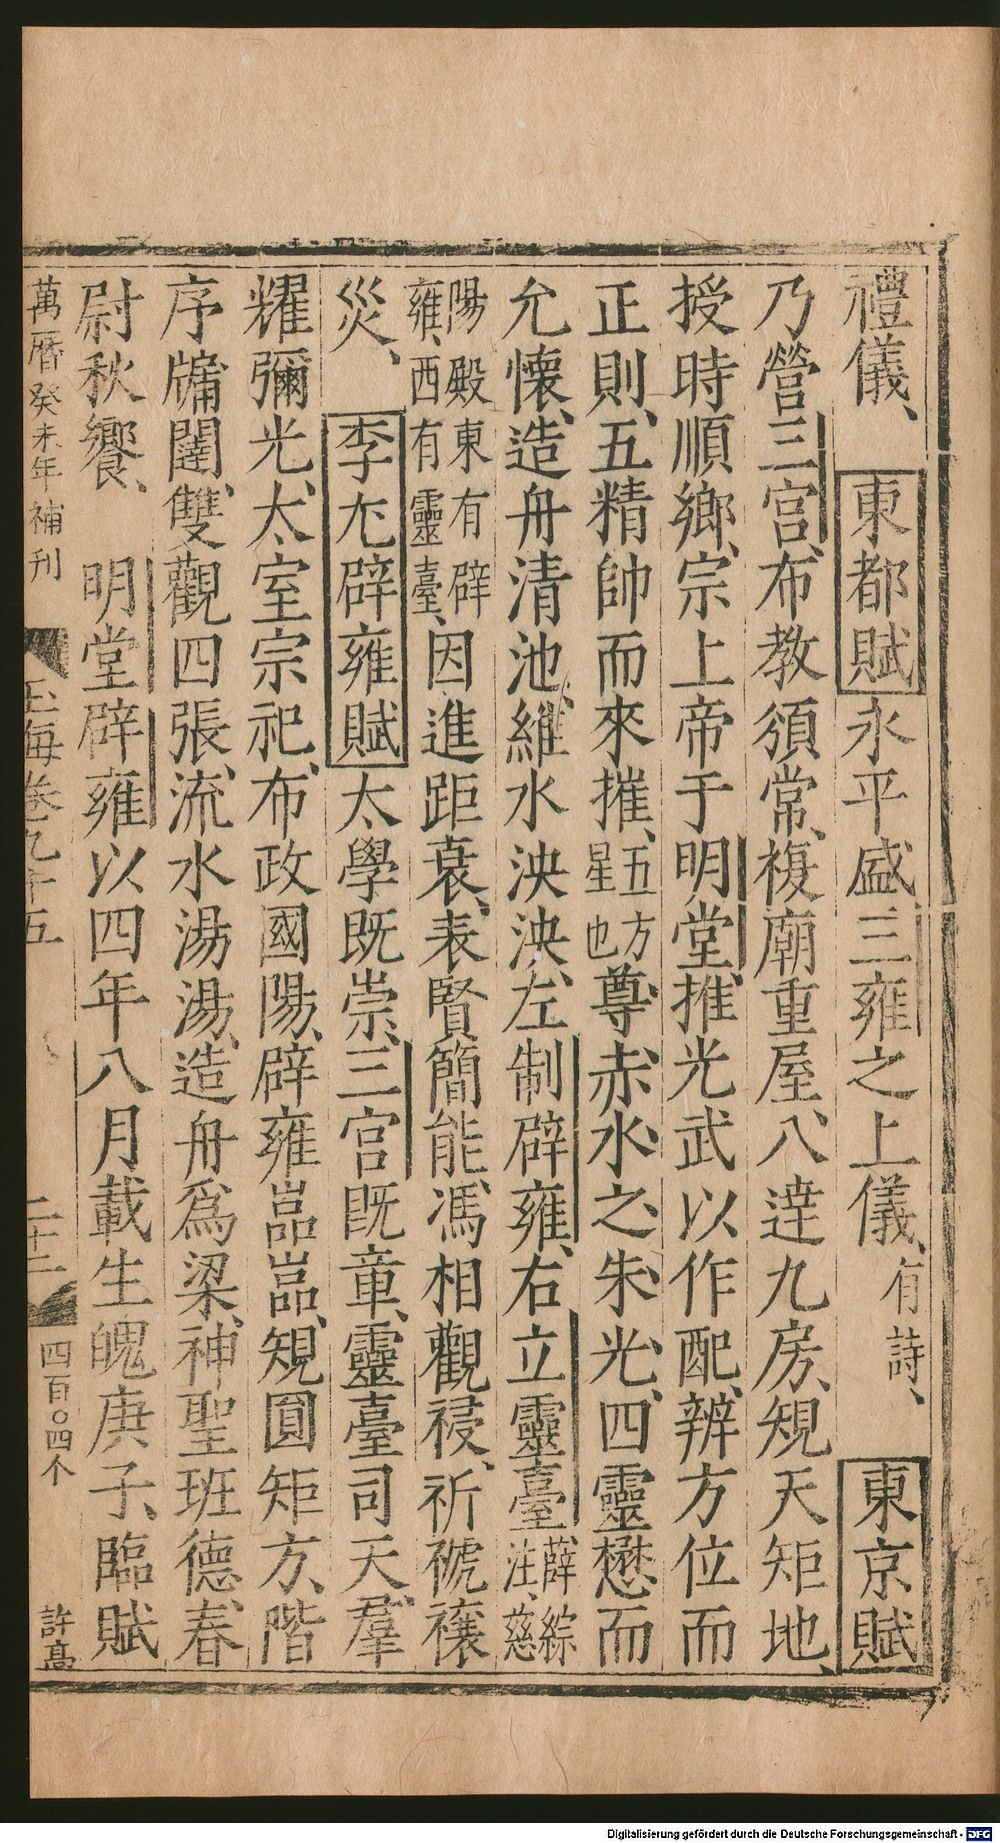 禮儀、東都賦永平盛三雍之上儀、有詩、東京賦
乃營三宮、布教須常、複廟重屋、八達九房、規天矩地、
授時順鄉、宗上帝于明堂、推光武以作配、辨方位而
正則、五精帥而來摧、五方星也尊赤水之朱光、四靈懋而
允懷、造舟清池、維水泱泱、左制辟雍、右立靈臺薛綜注、慈
陽殿東有辟雍、西有靈臺、因進距衰、表賢簡能、馮相觀祲、祈禠禳
災、李尤辟雍賦太學既崇、三宮既章、靈臺司天、羣
耀彌光、太室宗祀、布政國陽、辟雍嵓嵓、規圓矩方、階
序牖闥、雙觀四張、流水湯湯、造舟爲梁、神聖班德、春
尉秋饗、明堂辟雍以四年八月載生魄庚子、臨賦
萬曆癸未年補刊 玉海卷九十五 二十二 四百〇四个 許高
Digitalisierung gefördert durch die Deutsche Forschungsgemeinschaft - DFG